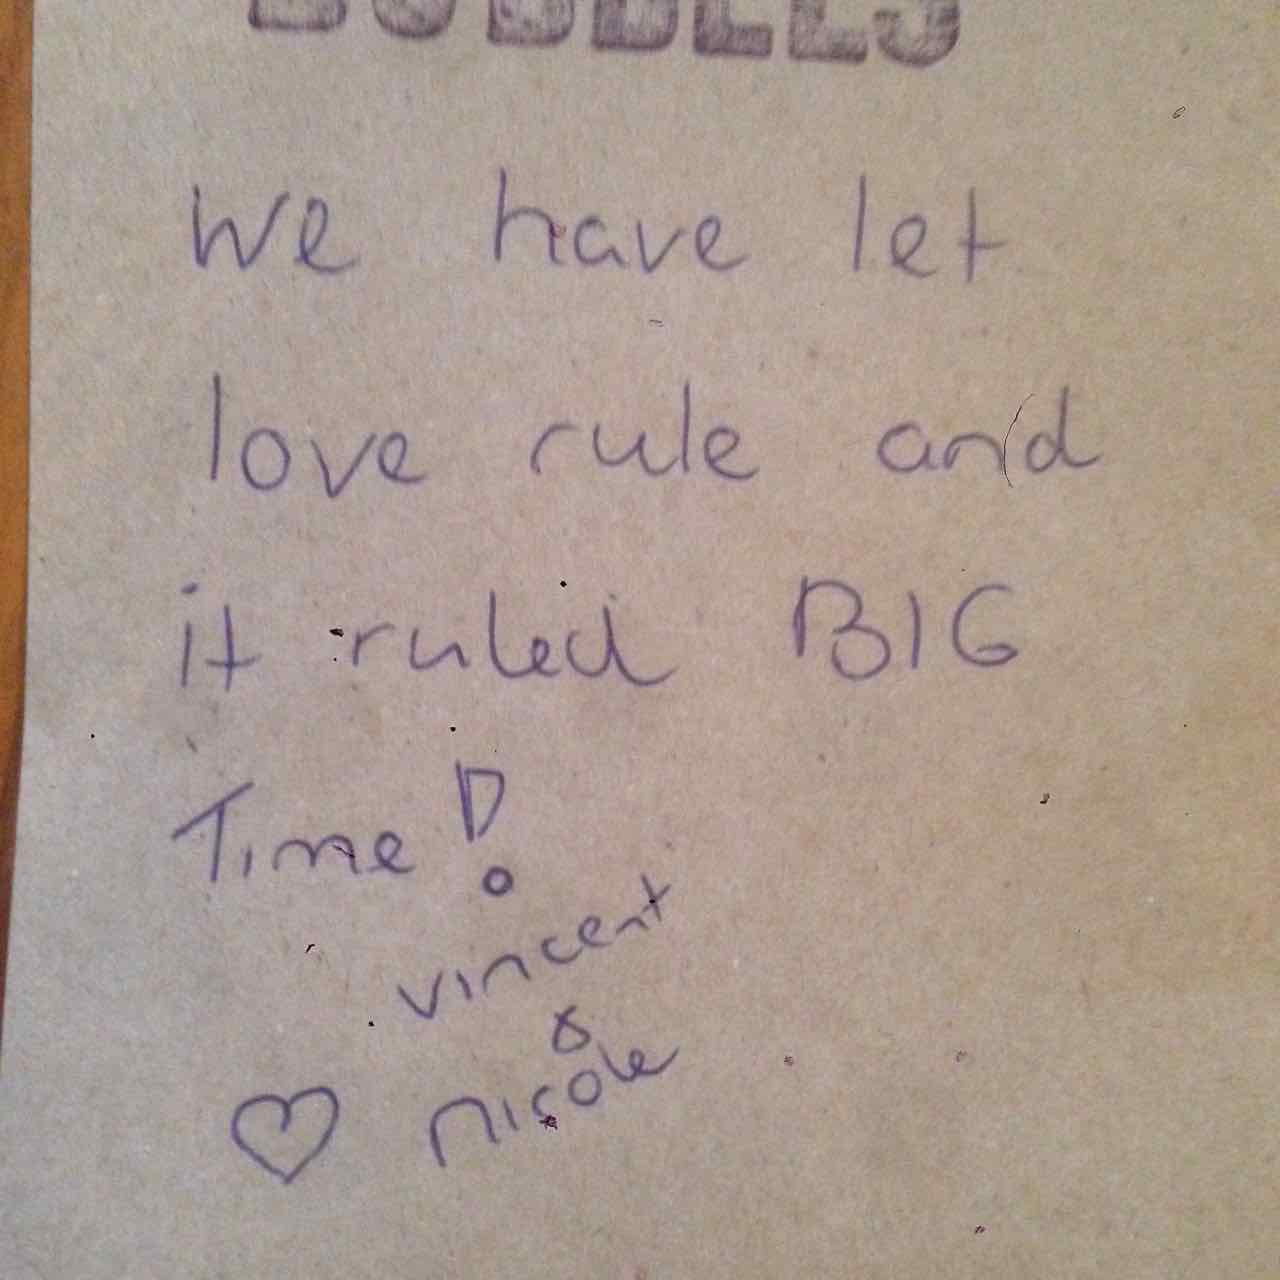 We have let
love rule and
it ruled BIG
Time!
vincent
&
nicole